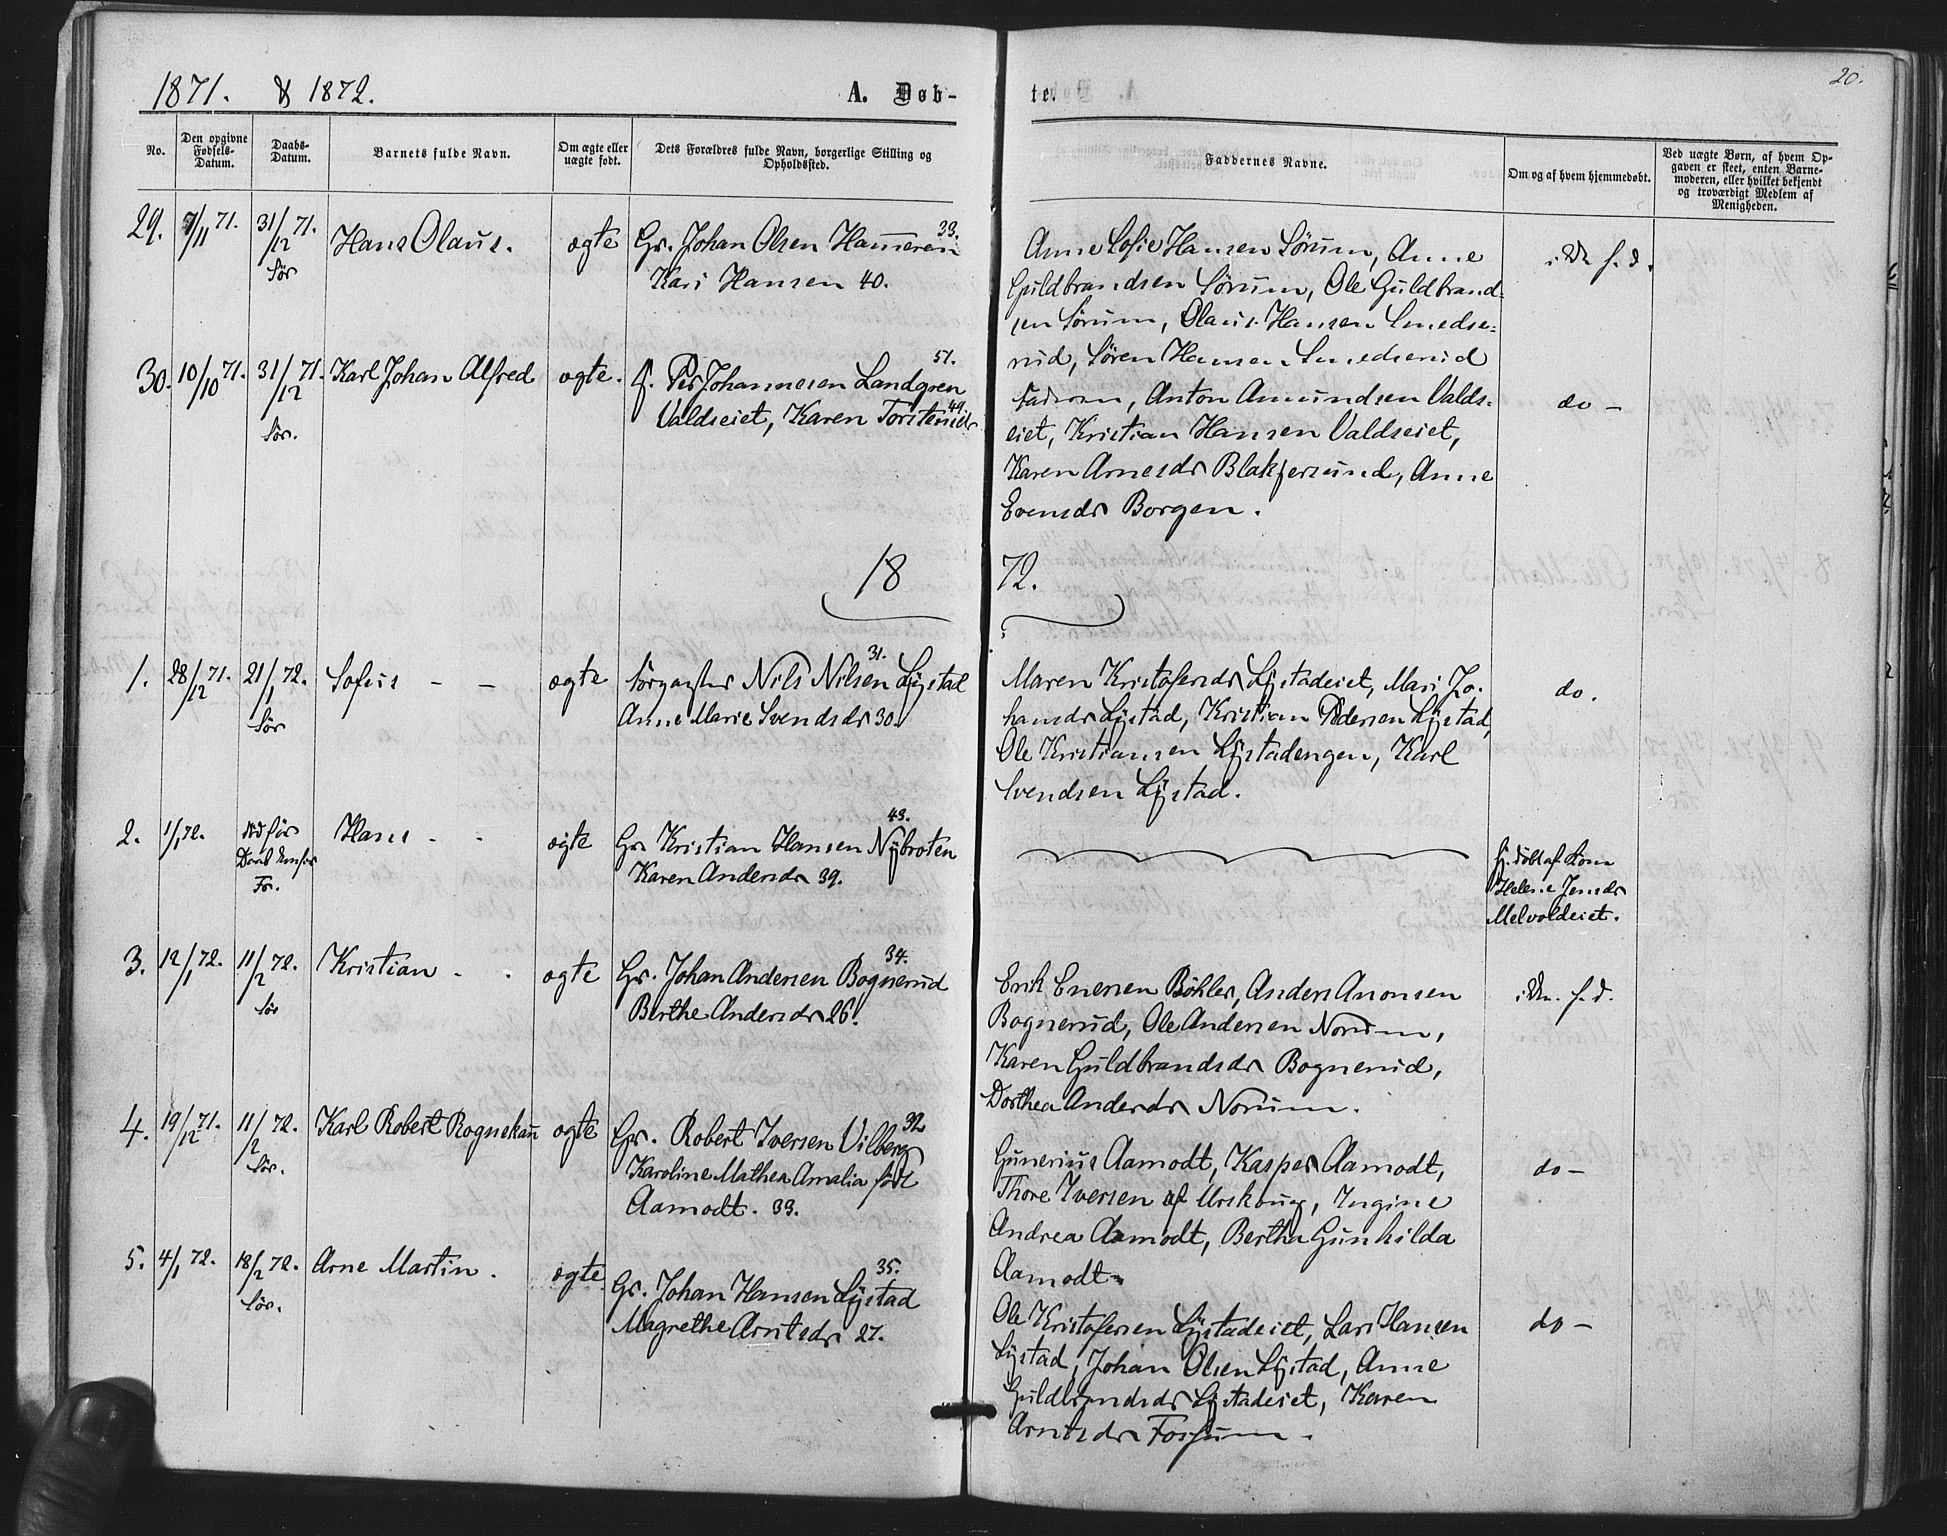 1871. & 1872.
A. Døb-
te.
20.
No.
Den opgivne Fødsels-Datum.
Daabs-Datum.
Barnets fulde Navn.
Om ægte eller uægte født.
Dets Forældres fulde Navn, borgerlige Stilling og Opholdssted.
Faddernes Navne.
Om og af hvem hjemmedøbt.
Ved uægte Børn, af hvem Op-
gaven er skeet, enten Barne-
moderen, eller hvilket bekjendt
og troværdigt Medlem af
Menigheden.
29. 7/11 71. 31/12 71. Sør Hans Olaus. ægte
Gr. Johan Olsen Hammeren 33.
Kari Hansen 40.
Anne Sofie Hansen Sørum, Anne
Guldbrandsen Sørum, Ole Guldbrand-
sen Sørum, Olaus Hansen Smedse-
rud, Søren Hansen Smedserud
f. d.
30. 10/10 71. 31/12 71. Sør. Karl Johan Alfred ægte.
f. Per Johannesen Landgren 51.
Valdseiet, Karen Torstensdr 49.
Faderen, Anton Amundsen Valds-
eiet, Kristian Hansen Valdseiet,
Karen Arnesdr Blakjersund, Anne
Evensdr Borgen.
do -
1872.
1. 28/12 71. 21/1 72. Sør Sofus - - ægte
Nils Nilsen Lystad 31.
Anne Marie Svendsdr 30.
Maren Kristofersdr Lystadeiet, Mari Jo-
hansdr Lystad, Kristian Pedersen Lystad,
Ole Kristiansen Lystadengen, Karl
Svendsen Lystad.
do.
2. 1/1 72. Hans - - ægte
Gr Kristian Hansen Nybroten 43.
Karen Andersdr 39.
Hj. døbt af Kone
Helene Jensdr
Melvoldeiet.
3. 12/1 72. 11/2 72. Sør Kristian - - ægte
Gr. Johan Andersen Bognerud 34.
Berthe Andersdr 26.
Erik Enersen Bøhler, Anders Aronsen
Bognerud, Ole Andersen Norum,
Karen Guldbrandsdr Bognerud,
Dorthea Andersdr Norum.
f. d.
4. 19/12 71. 11/2 72. Sør. Karl Robert Rognekau ægte
Gr. Robert Iversen Vilberg 32
Karoline Mathea Amalia født
Aamodt. 33.
Gunerius Aamodt, Kasper Aamodt,
Thore Iversen af Urskoug, Ingine
Andrea Aamodt, Bertha Gunhilda
Aamodt.
do -
5. 4/1 72. 18/2 72. Sør. Arne Martin. ægte
Gr. Johan Hansen Lystad 35.
Magrethe Arntsdr 27.
Ole Kristofersen Lystadeiet, Lars Hansen
Lystad, Johan Olsen Lystad, Anne
Guldbrandsdr Lystadeiet, Karen
Arntsdr Fossum.
do -